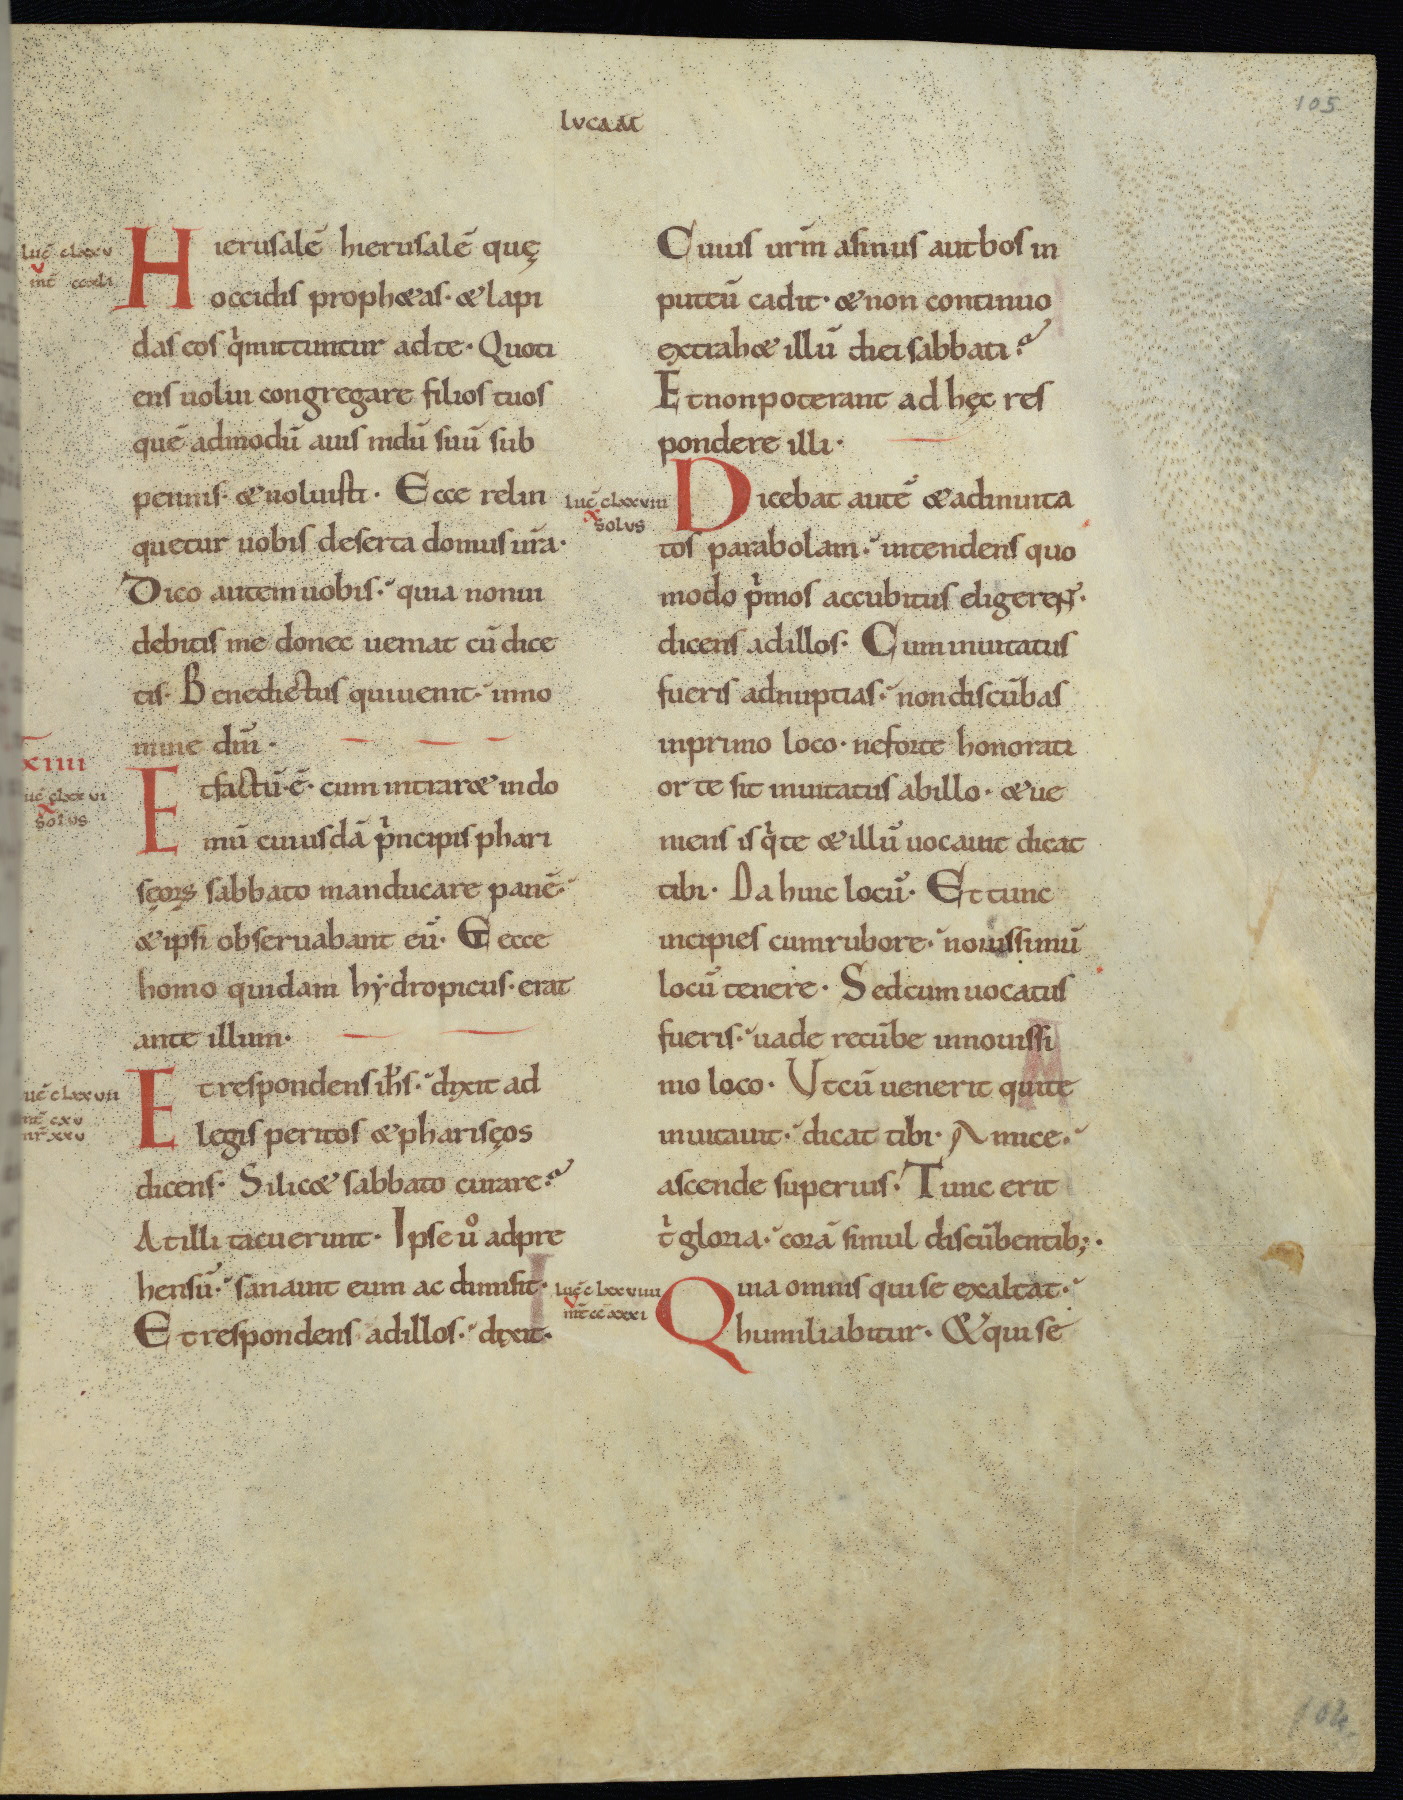 lucam
105
luc̄ clxxv
v
mt̄ ccxli
Hierusalē hierusalē quę
occidis prophetas· et lapi
das eos q̇mittuntur ad te· Quoti
ens uolui congregare filios tuos
quē admodū auis nidū suū sub
pennis· et noluisti· Ecce relin
quetur uobis deserta domus ur̄a·
Dico autem uobis· quia non ui
debitis me donec ueniat cū dice
tis· Benedictus qui uenit· in no
mine dn̄i·
xiiii
luc̄ clxxvi
x
solus
Et factū·ē· cum intraret in do
mū cuiusdā pincipis phari
sęoꝝ sabbato manducare panē·
et ipsi obseruabant eū· Et ecce
homo quidam hẏdropicus· erat
ante illum·
luc̄ clxxvii
mt̄ cxv
mr̄ xxv
Et respondens ih̄s· dixit ad
legis peritos et pharisęos
dicens· Si licet sabbato curare?
At illi tacuerunt· Ipse uº adpre
hensū· sanauit eum ac dimisit·
Et respondens ad illos· dixit·
Cuius ur̄m asinus aut bos in
puteū cadit· et non continuo
extrahet illū diei sabbati?
Et non poterant ad hęc res
pondere illi·
luc̄ clxxviii
x
solus
Dicebat autē et ad inuita
tos parabolam· intendens quo
modo pimos accubitus eligerent·
dicens ad illos· Cum inuitatus
fueris ad nuptias· non discūbas
in primo loco· ne forte honorati
or te sit inuitatus ab illo· et ue
niens is q̇ te et illū uocauit dicat
tibi· Da huic locū· Et tunc
incipies cum rubore· nouissimū
locū tenere· Sed cum uocatus
fueris· uade recūbe in nouissi
mo loco· Ut cū uenerit qui te
inuitauit· dicat tibi· Amice·
ascende superius· Tunc erit
t̍ gloria· corā simul discūbentib;·
luc̄ clxxviiii
v
mt̄ ccxxxi
Quia omnis qui se exaltat·
humiliabitur· Et qui se
104